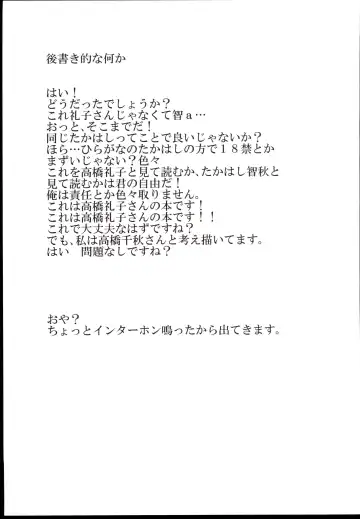 後書き的な何か
はい！
どうだったでしょうか？
これ礼子さんじゃなくて智ａ…
おっと、そこまでだ！
同じたかはしってことで良いじゃないか？
ほら…ひらがなのたかはしの方で１８禁とか
まずいじゃない？色々
これを高橋礼子と見て読むか、たかはし智秋と
見て読むかは君の自由だ！
俺は責任とか色々取りません。
これは高橋礼子さんの本です！
これは高橋礼子さんの本です！！
これで大丈夫なはずですね？
でも、私は高橋千秋さんと考え描いてます。
はい　問題なしですね？
おや？
ちょっとインターホン鳴ったから出てきます。